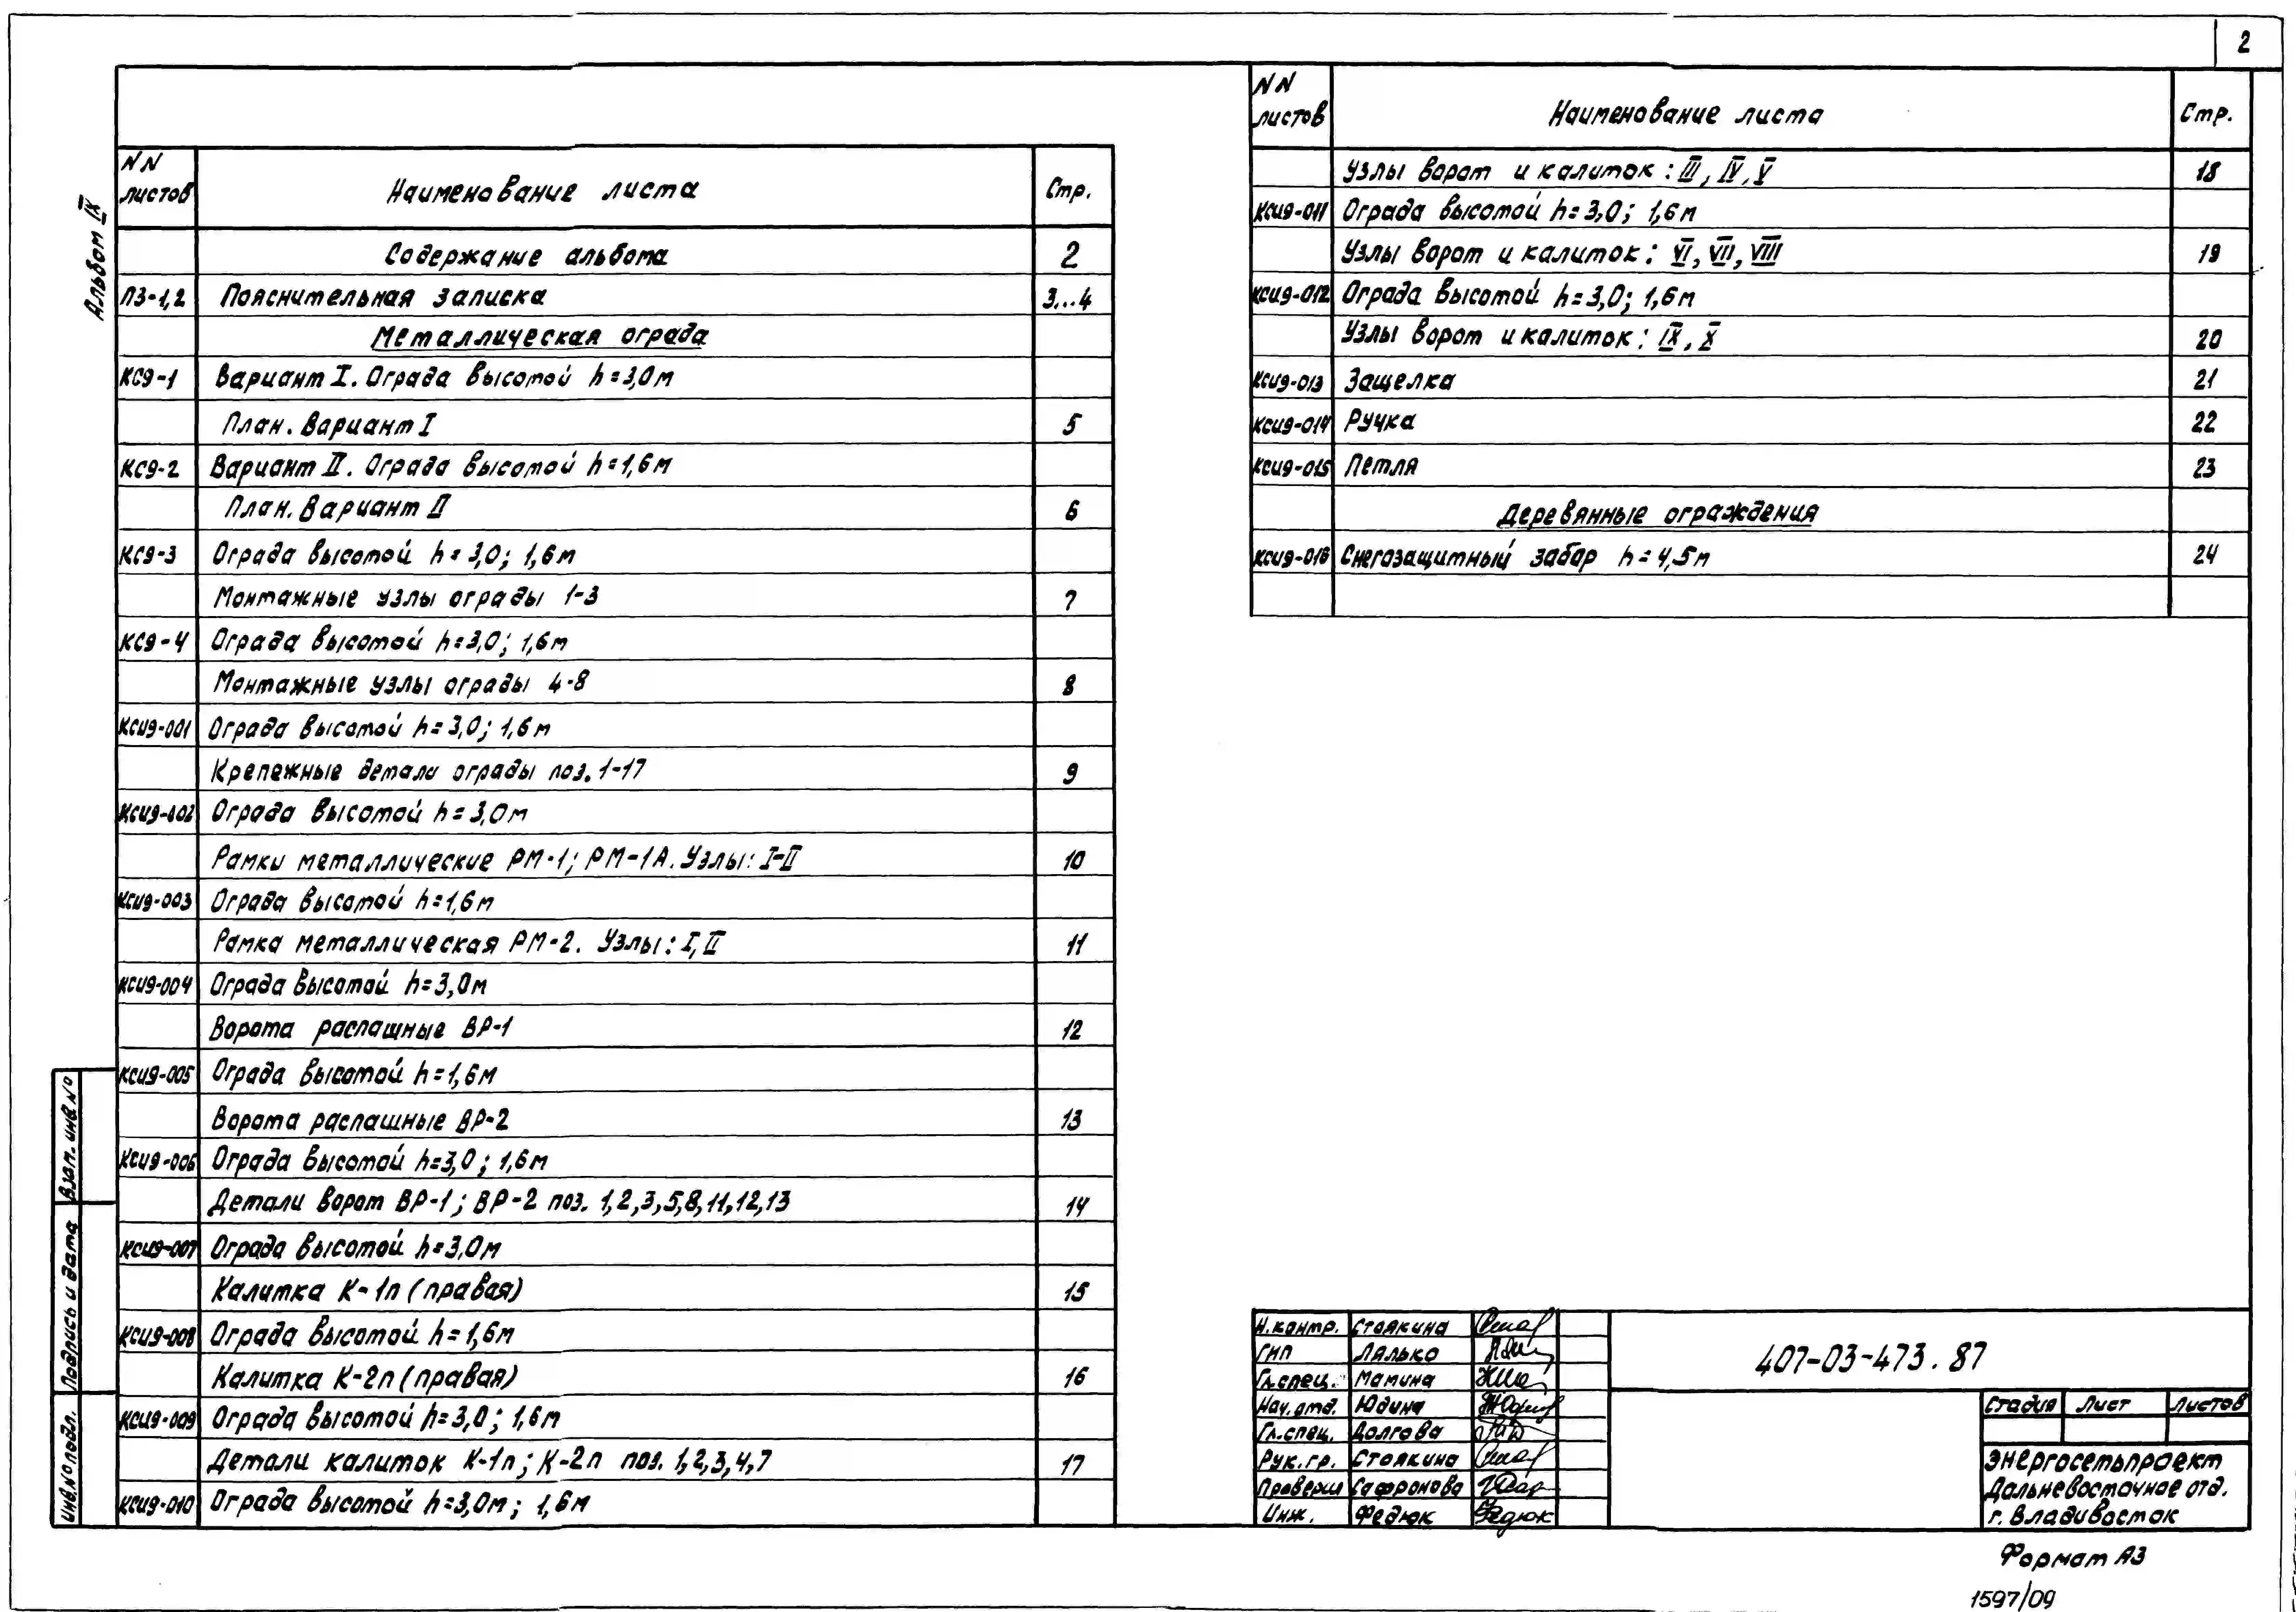 2
Альбом IX
NN листов Наименование листа Стр.
Содержание альбома 2
ПЗ-1,2 Пояснительная записка 3...4
Металлическая ограда
КС9-1 Вариант I. Ограда высотой h=3,0м
План. Вариант I 5
КС9-2 Вариант II. Ограда высотой h=1,6м
План. Вариант II 6
КС9-3 Ограда высотой h=3,0; 1,6м
Монтажные узлы ограды 1-3 7
КС9-4 Ограда высотой h=3,0; 1,6м
Монтажные узлы ограды 4-8 8
КСИ9-001 Ограда высотой h=3,0; 1,6м
Крепежные детали ограды поз. 1-17 9
КСИ9-002 Ограда высотой h=3,0м
Рамки металлические РМ-1; РМ-1А. Узлы: I-II 10
КСИ9-003 Ограда высотой h=1,6м
Рамка металлическая РМ-2. Узлы: I, II 11
КСИ9-004 Ограда высотой h=3,0м
Ворота распашные ВР-1 12
КСИ9-005 Ограда высотой h=1,6м
Ворота распашные ВР-2 13
КСИ9-006 Ограда высотой h=3,0; 1,6м
Детали ворот ВР-1; ВР-2 поз. 1,2,3,5,8,11,12,13 14
КСИ9-007 Ограда высотой h=3,0м
Калитка К-1п (правая) 15
КСИ9-008 Ограда высотой h=1,6м
Калитка К-2п (правая) 16
КСИ9-009 Ограда высотой h=3,0; 1,6м
Детали калиток К-1п; К-2п поз. 1,2,3,4,7 17
КСИ9-010 Ограда высотой h=3,0м; 1,6м
NN листов Наименование листа Стр.
Узлы ворот и калиток: III, IV, V 18
КСИ9-011 Ограда высотой h=3,0; 1,6м
Узлы ворот и калиток: VI, VII, VIII 19
КСИ9-012 Ограда высотой h=3,0; 1,6м
Узлы ворот и калиток: IX, X 20
КСИ9-013 Защелка 21
КСИ9-014 Ручка 22
КСИ9-015 Петля 23
Деревянные ограждения
КСИ9-016 Снегозащитный забор h=4,5м 24
Взам. инв. №
Подпись и дата
Инв.№ подл.
Н.контр. Стоякина
ГИП Лялько
Гл.спец. Мамина
Нач.отд. Юдина
Гл.спец. Долгова
Рук.гр. Стоякина
Проверил Сафронова
Инж. Федюк Федюк
407-03-473.87
Стадия Лист Листов
Энергосетьпроект
Дальневосточное отд.
г. Владивосток
Формат А3
1597/09